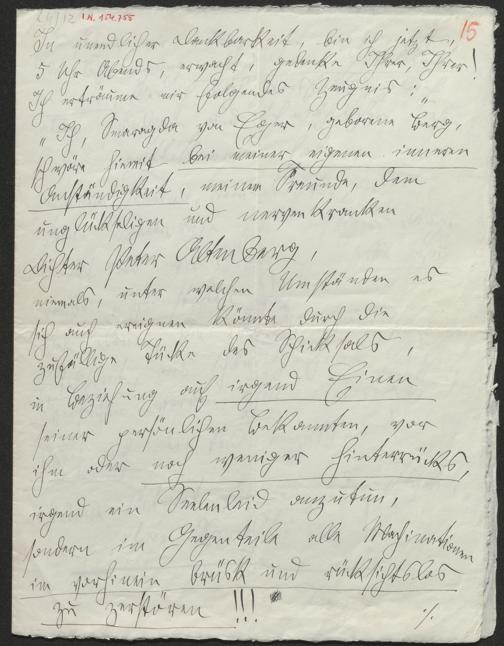 I.N. 154.755
15
In unendlicher Dankbarkeit, bin ich jetzt,
5 Uhr Abends, erwacht, gedenke Ihrer, Ihrer!
Ich erträume mir folgendes Zeugnis:
„Ich, Smaragda von Eger, geborene Berg,"
schwöre hiemit bei meiner eigenen inneren
Anständigkeit, meinem Freunde, dem
unglückseligen und nervenkranken
Dichter Peter Altenberg,
niemals, unter welchen Umständen es
sich auch ereignen könnte durch die
zufällige Tücke des Schicksals,
in Beziehung auf irgend Einen
seiner persönlichen Bekannten, vor
ihm oder noch weniger hinterrücks,
irgend ein Seelenleid anzutun,
sondern im Gegenteile alle Machinationen
im vorhinein brüsk und rücksichtslos
zu zerstören!!!
./.